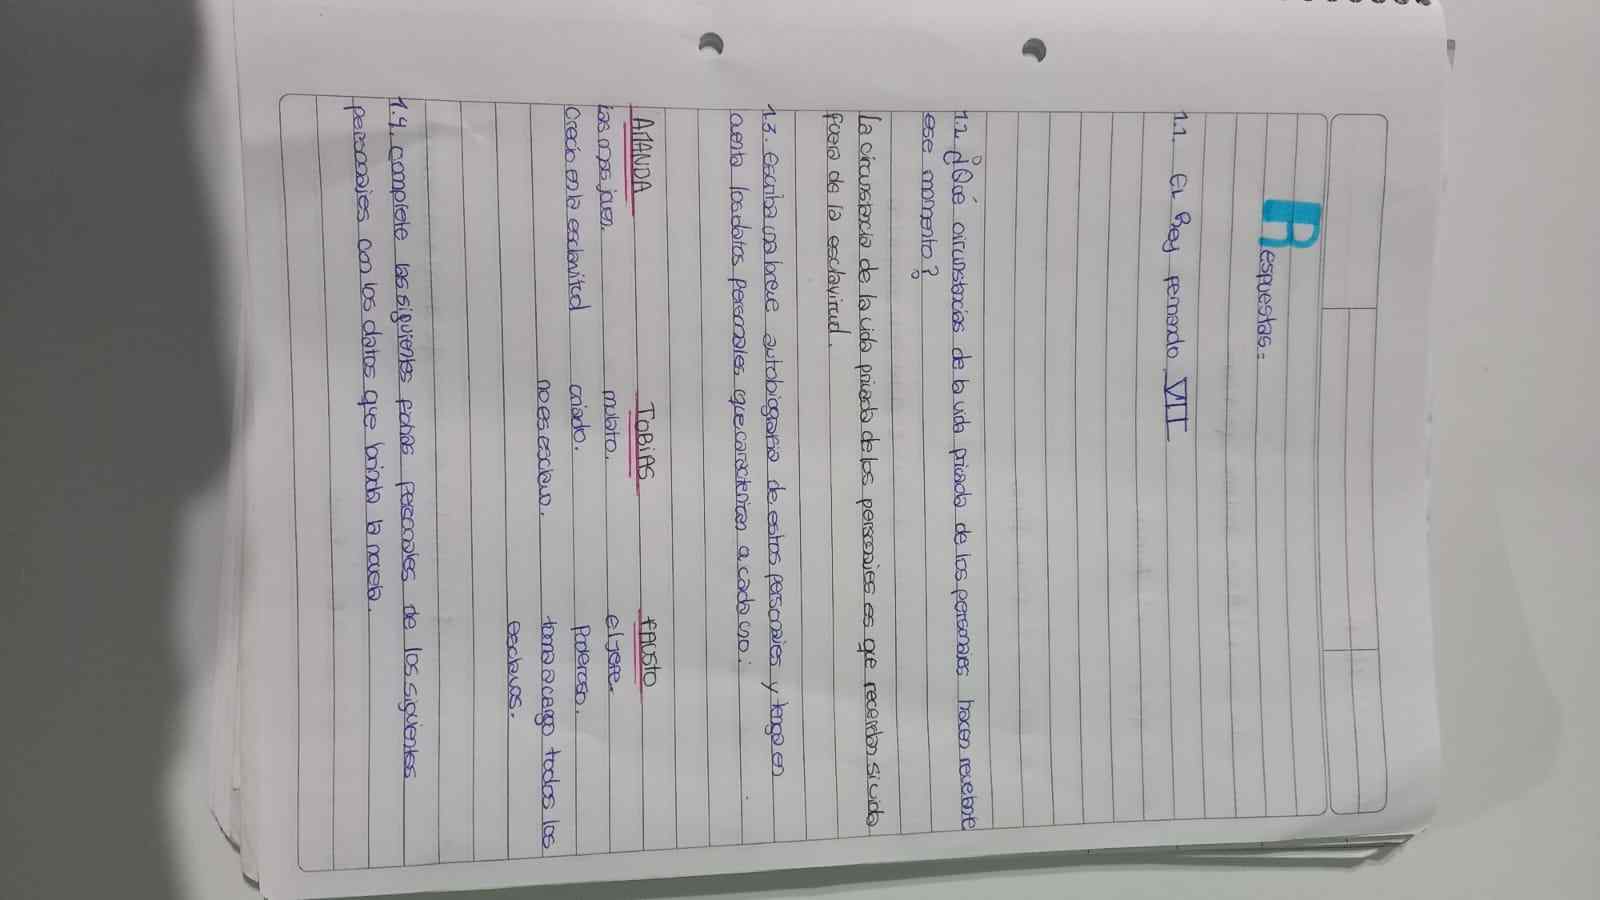 Respuestas:
1.1. El Rey Fernando VII
1.2. ¿Qué circunstancias de la vida privada de los personajes hacen
ese momento?
la circunstancia de la vida privada de los personajes es que recuerdan su vida
fuera de la esclavitud.
1.3. Escriba una breve autobiografia de estos personajes y tenga en
cuenta los datos personales que caracterizan a cada uno:
AMANDA TOBIAS FAUSTO
las mas joven. mulato. el jefe.
Crecio en la esclavitud criado. Poderoso.
no es esclavo. toma a cargo todos los
esclavos.
1.4. complete las siguientes fichas personales de los siguientes
personajes con los datos que brinda la novela.